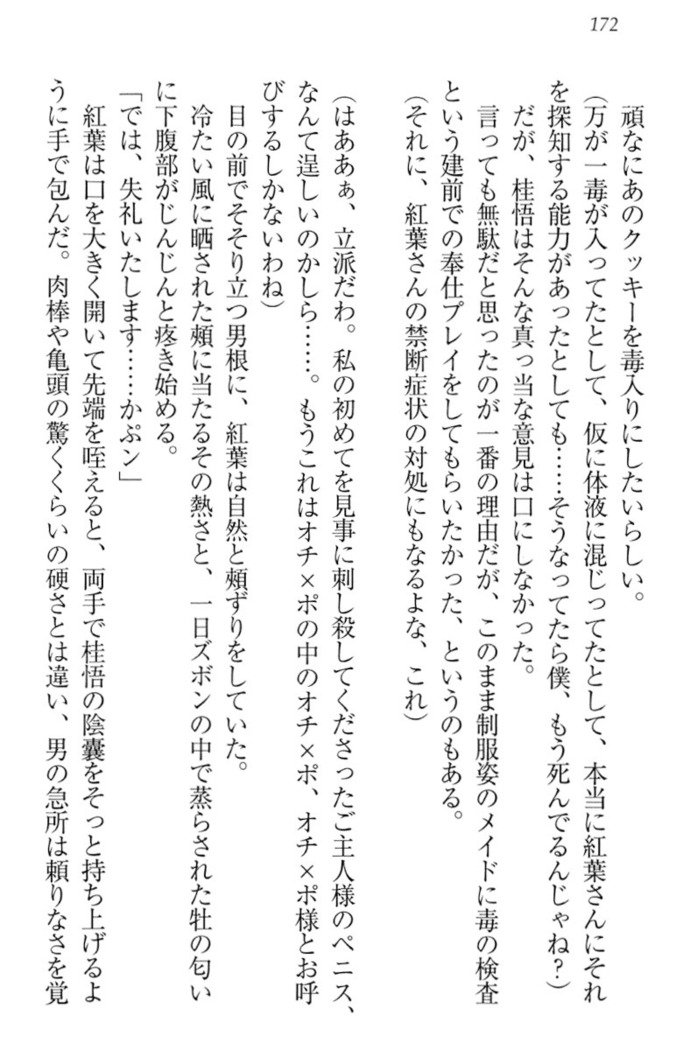 172
頑なにあのクッキーを毒入りにしたいらしい。
(万が一毒が入ってたとして、仮に体液に混じってたとして、本当に紅葉さんにそれ
を探知する能力があったとしても……そうなってたら僕、もう死んでるんじゃね?)
だが、桂悟はそんな真っ当な意見は口にしなかった。
言っても無駄だと思ったのが一番の理由だが、このまま制服姿のメイドに毒の検査
という建前での奉仕プレイをしてもらいたかった、というのもある。
(それに、紅葉さんの禁断症状の対処にもなるよな、これ)
(はああぁ、立派だわ。私の初めてを見事に刺し殺してくださったご主人様のペニス、
なんて逞しいのかしら……。もうこれはオチ×ポの中のオチ×ポ、オチ×ポ様とお呼
びするしかないわね)
目の前でそそり立つ男根に、紅葉は自然と頬ずりをしていた。
冷たい風に晒された頬に当たるその熱さと、一日ズボンの中で蒸らされた牡の匂い
に下腹部がじんじんと疼き始める。
「では、失礼いたします……かぷン」
紅葉は口を大きく開いて先端を咥えると、両手で桂悟の陰嚢をそっと持ち上げるよ
うに手で包んだ。肉棒や亀頭の驚くくらいの硬さとは違い、男の急所は頼りなさを覚